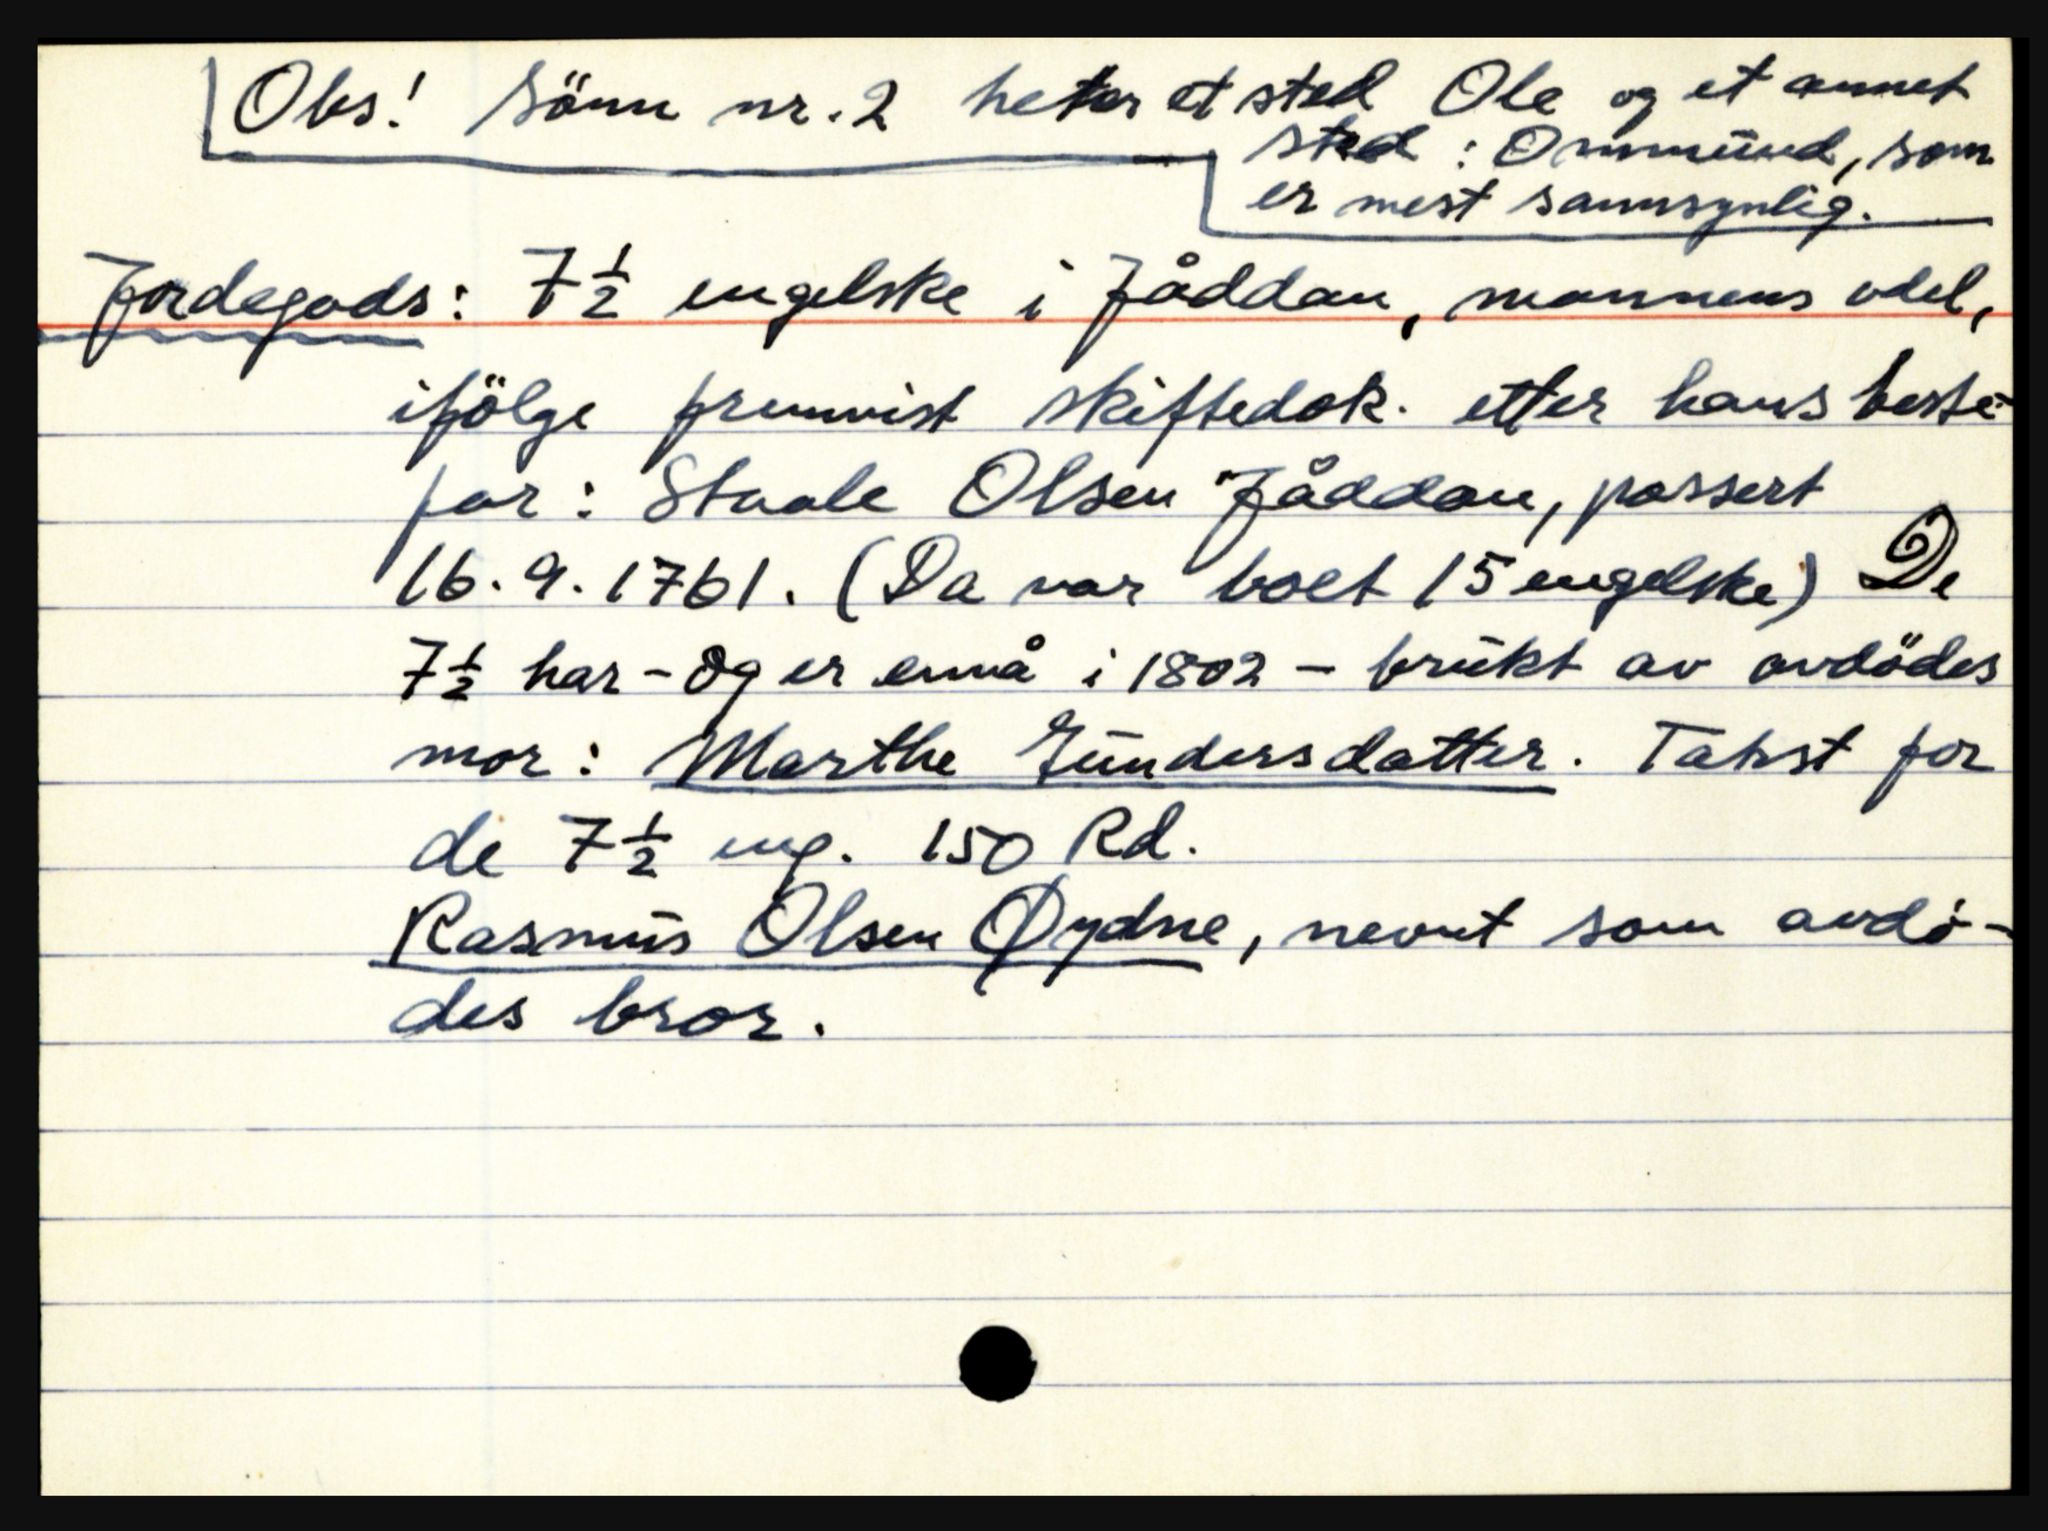 Obs! Sönn nr. 2 heter et sted Ole og et annet
sted : Ommund, som
er mest sannsynlig.
Jordegods: 7 1/2 engelske i Jåddan, mannens odel,
ifölge fremvist skiftedok. etter hans beste-
far : Staale Olsen Jåddan, passert
16.9.1761. (Da var boet 15 engelske) De
7 1/2 har - og er ennå i 1802 - brukt av avdödes
mor : Marthe Gundersdatter. Takst for
de 7 1/2 eng. 150 Rd.
Rasmus Olsen Øydne, nevnt som avdö-
des bror.